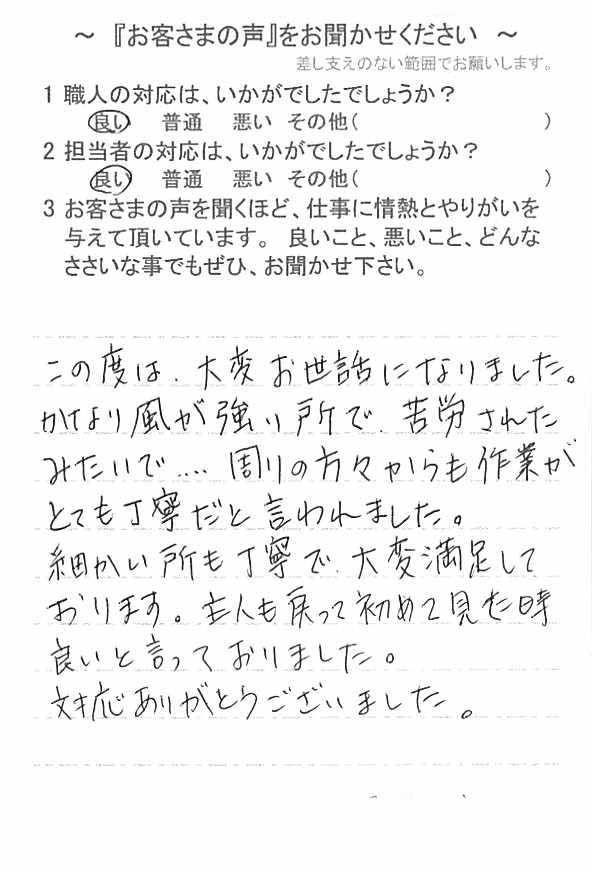 ～ 『お客さまの声』をお聞かせください ～
差し支えのない範囲でお願いします。
1 職人の対応は、いかがでしたでしょうか？
良い 普通 悪い その他( )
2 担当者の対応は、いかがでしたでしょうか？
良い 普通 悪い その他( )
3 お客さまの声を聞くほど、仕事に情熱とやりがいを
与えて頂いています。 良いこと、悪いこと、どんな
ささいな事でもぜひ、お聞かせ下さい。
この度は、大変お世話になりました。
かなり風が強い所で、苦労された
みたいで…. 周りの方々からも作業が
とても丁寧だと言われました。
細かい所も丁寧で、大変満足して
おります。主人も戻って初めて見た時
良いと言っておりました。
対応ありがとうございました。